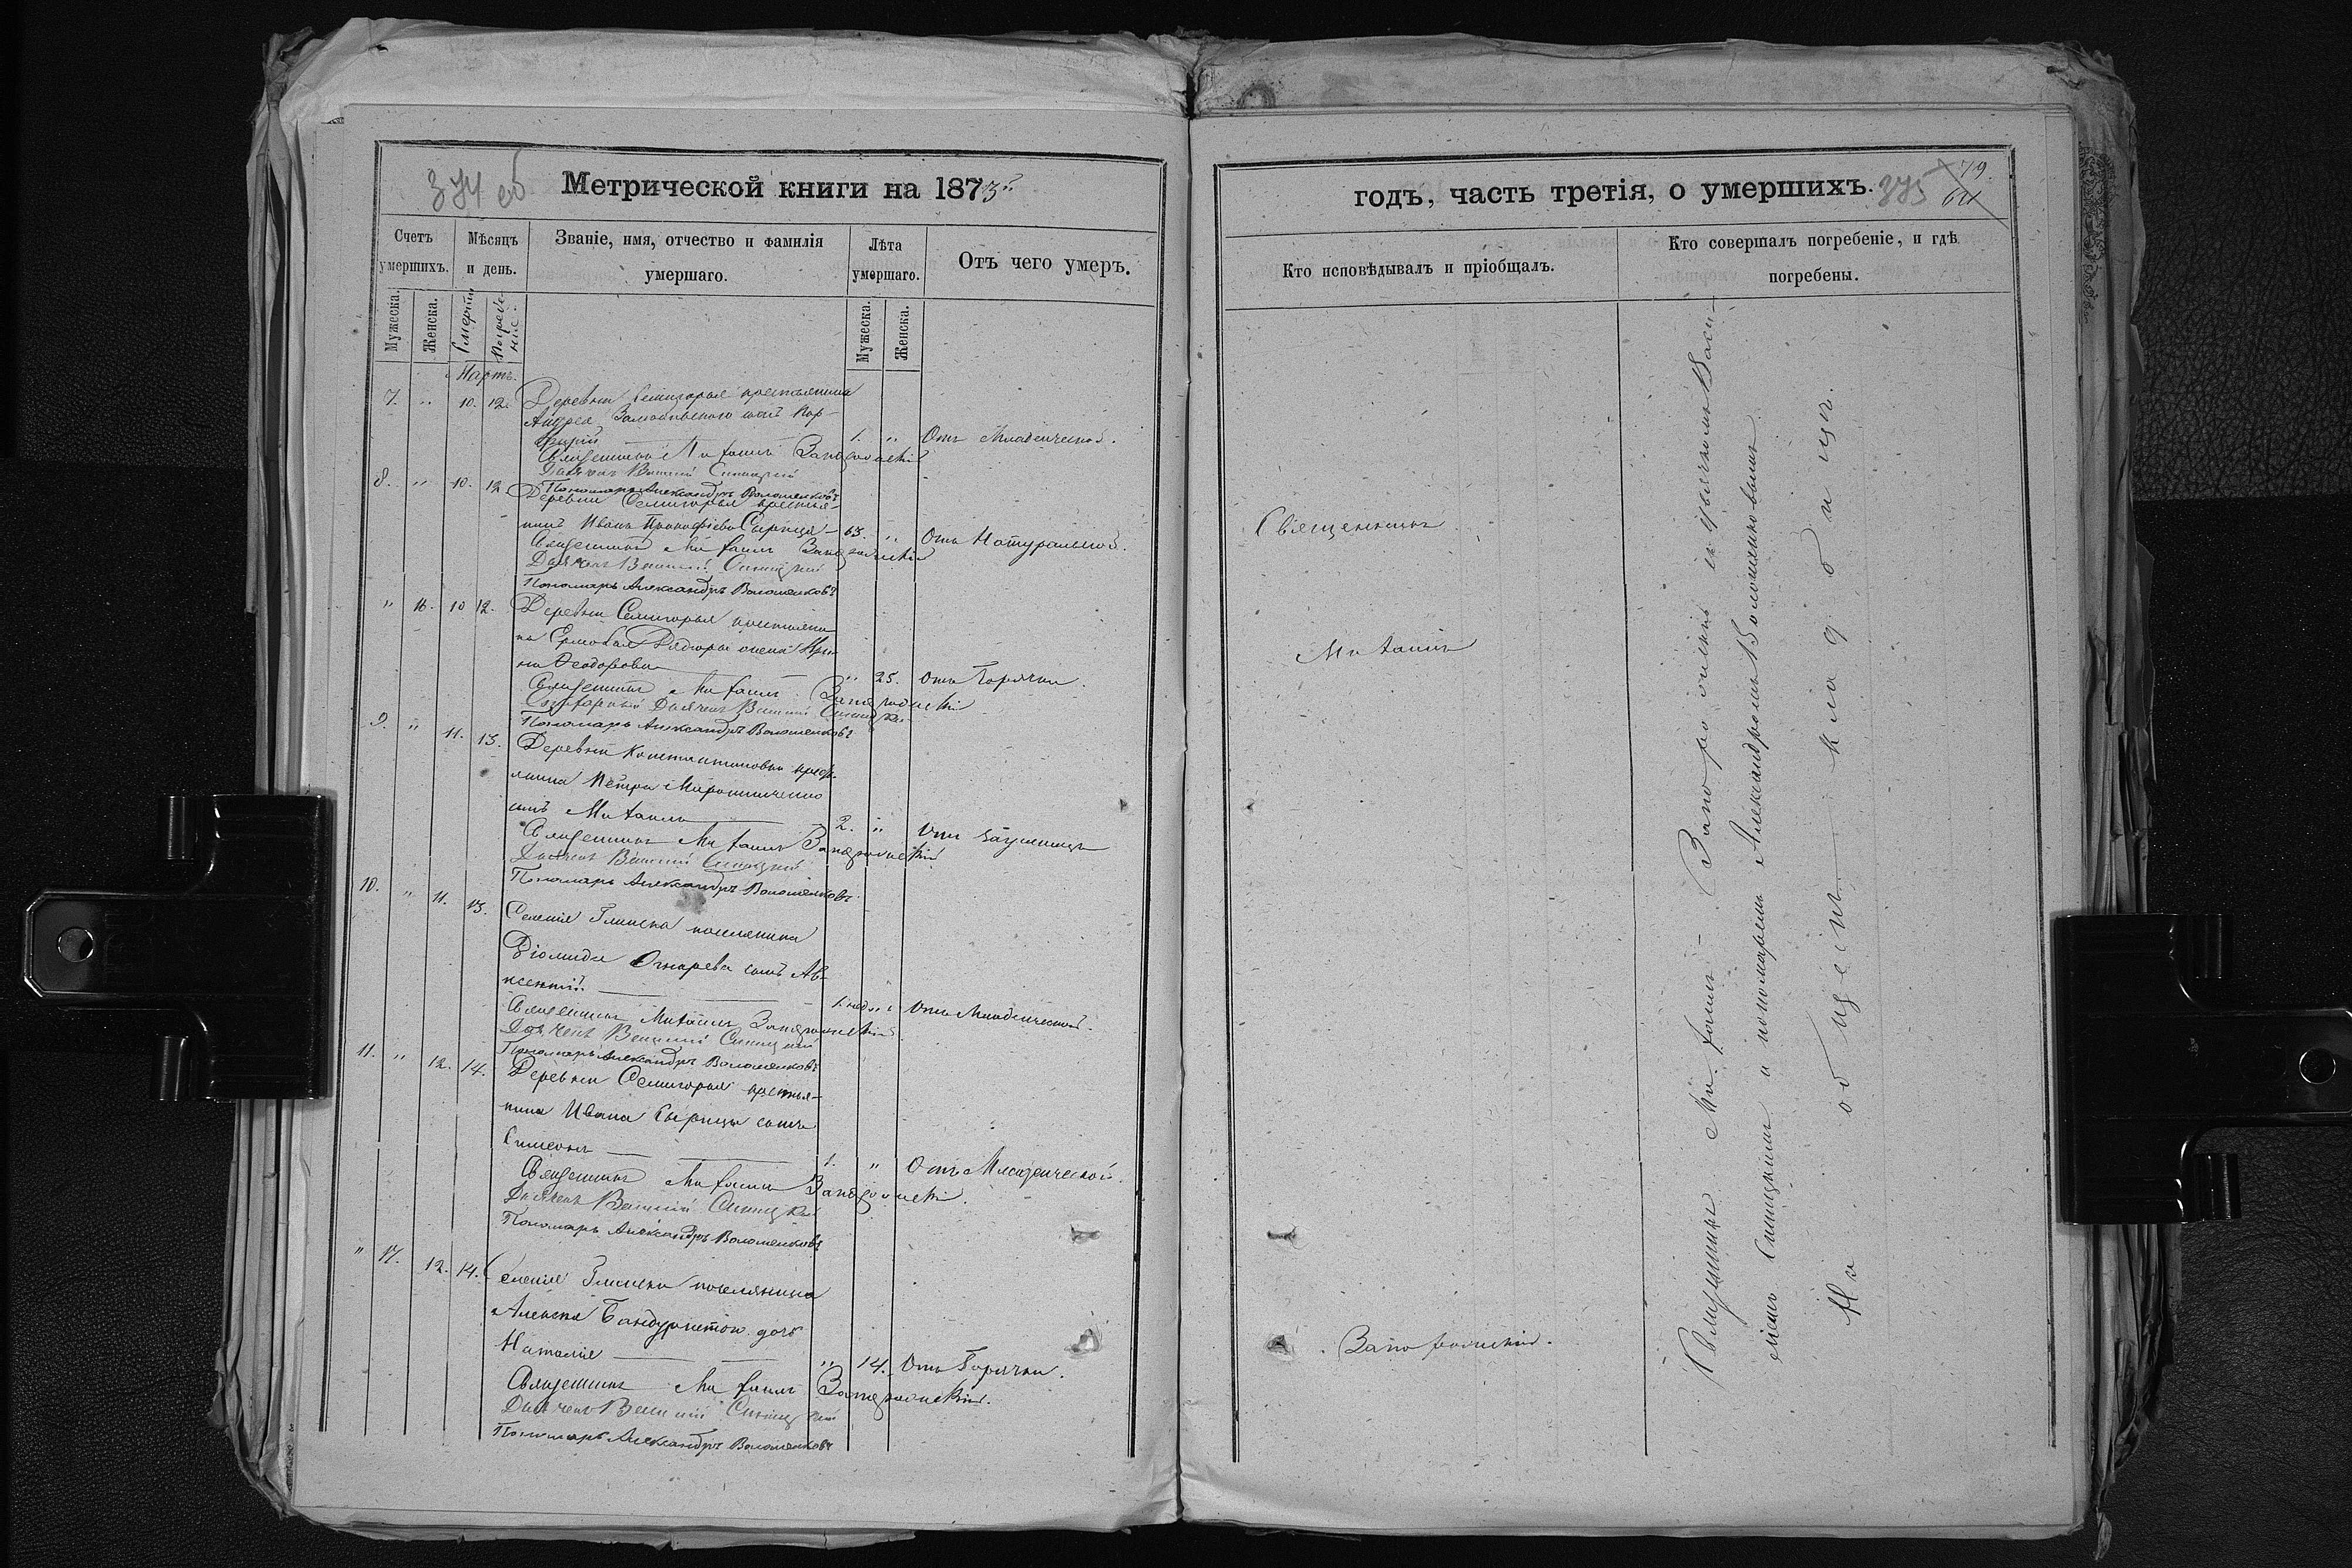 374 об
Метрической книги на 1873й
Счетъ умершихъ.
Мѣсяцъ и день.
Званіе, имя, отчество и фамилія умершаго.
Лѣта умершаго.
Отъ чего умеръ.
Мужеска.
Женска.
Смерти
Погребе-
нія.
Мужеска.
Женска.
Мартъ.
7. " 10. 12.
Деревни Семигорья крестьянина
Андрея сынъ Пор-
фирій 1. " Отъ Младенческой.
Священникъ Михаилъ Запорожскій
Дьячекъ Василій Синицкій
Пономарь Александръ Волошенковъ
8. " 10. 12.
Деревни Семигорья крестья-
нинъ Иванъ Прокофіевъ Сырица 63. " Отъ Натуральной.
Священникъ Михаилъ Запорожскій
Дьячекъ Василій Синицкій
Пономарь Александръ Волошенковъ
" 16. 10 12.
Деревни Семигорья крестьяни-
на жена Ири-
на Феодорова " 25. Отъ Горячки.
Священникъ Михаилъ Запорожскій
Дьячекъ Василій Синицкій
Пономарь Александръ Волошенковъ
9. " 11. 13.
Деревни Константиновки крест-
янина Петра Мирошниченко
сынъ Михаилъ 2. " Отъ
Священникъ Михаилъ Запорожскій
Дьячекъ Василій Синицкій
Пономарь Александръ Волошенковъ
10. " 11. 13.
Селенія Глинска поселянина
Діомида Огнарева сынъ Ав-
ксентій. 1. нед. " Отъ Младенческой.
Священникъ Михаилъ Запорожскій
Дьячекъ Василій Синицкій
Пономарь Александръ Волошенковъ
11. " 12. 14.
Деревни Семигорья крестья-
нина Ивана Сырицы сынъ
Симеонъ 1. " Отъ Младенческой.
Священникъ Михаилъ Запорожскій.
Дьячекъ Василій Синицкій
Пономарь Александръ Волошенковъ
" 17. 12. 14.
Селенія Глинска поселянина
Алексея дочь
Наталія " 14. Отъ Горячки.
Священникъ Михаилъ Запорожскій.
Дьячекъ Василій Синицкій
Пономарь Александръ Волошенковъ
годъ, часть третія, о умершихъ. 375
79.
64
Кто исповѣдывалъ и пріобщалъ.
Кто совершалъ погребеніе, и гдѣ погребены.
Священникъ
Михаилъ
Запорожскій.
Священникъ Михаилъ Запорожскій съ дьячкомъ Васи-
ліемъ Синицкимъ и пономаремъ Александромъ Волошенковымъ
На общемъ кладбищѣ.